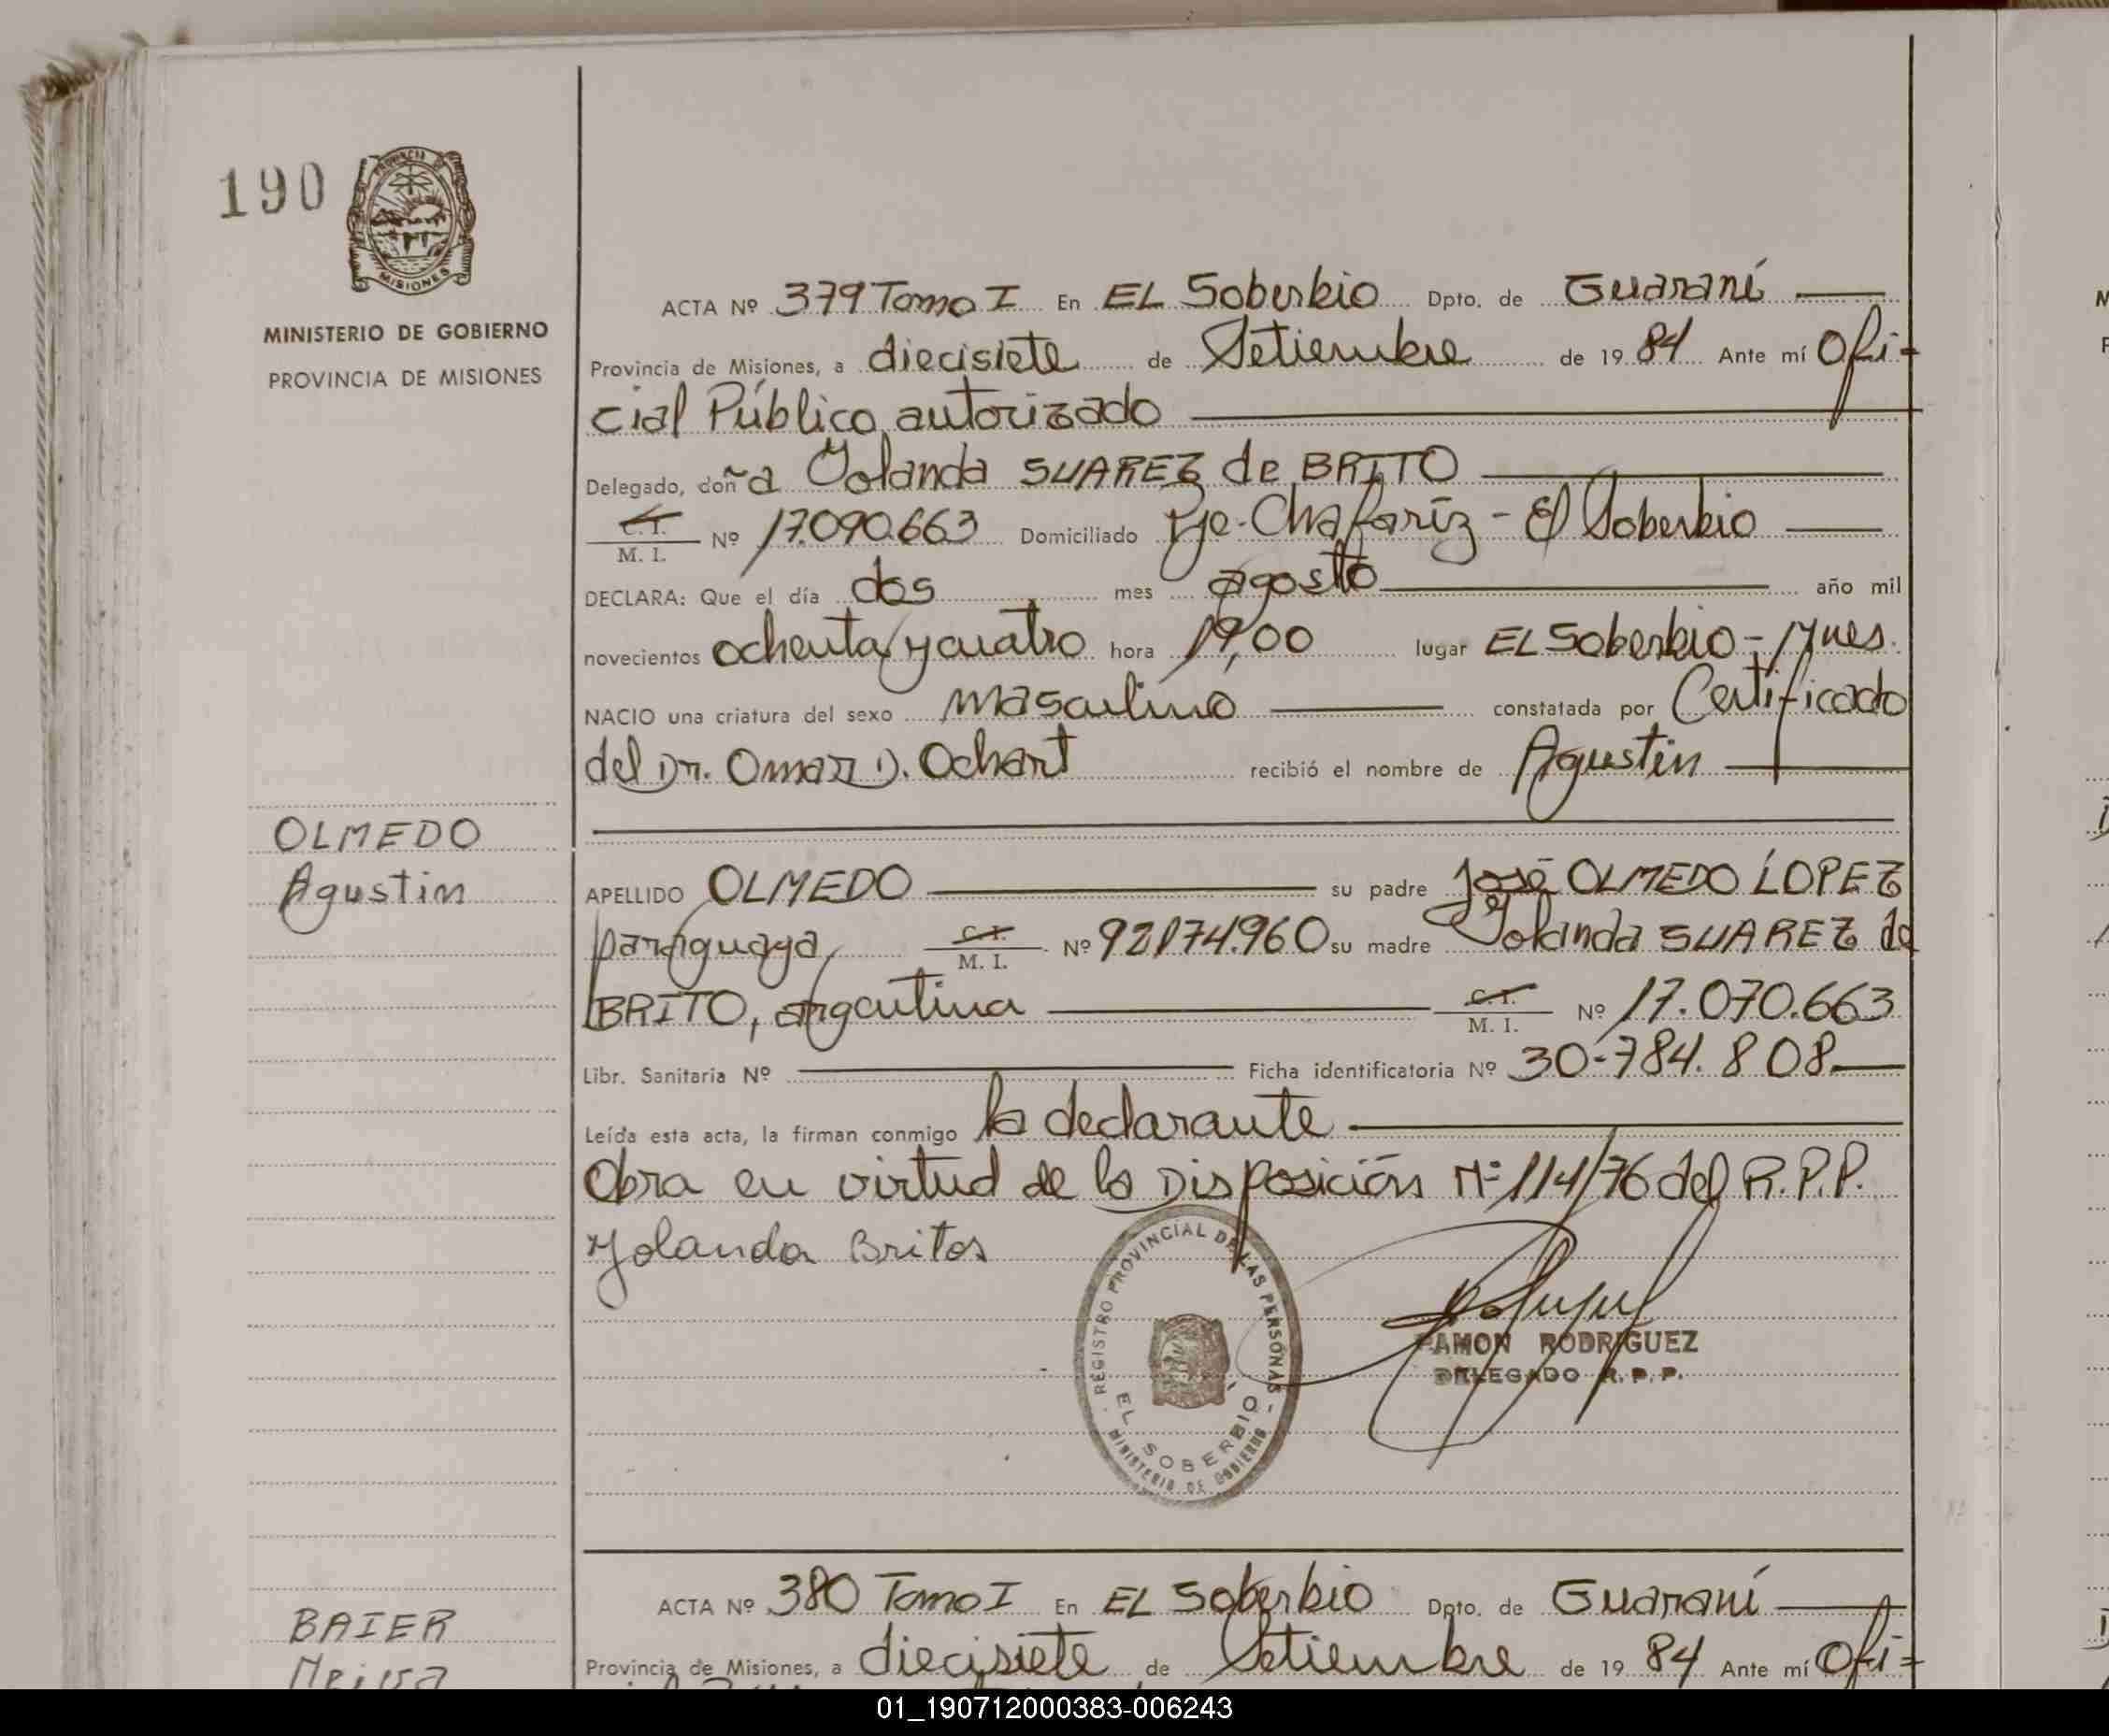 190
PROVINCIA DE
MISIONES
MINISTERIO DE GOBIERNO
PROVINCIA DE MISIONES
ACTA Nº 379 Tomo I En EL Soberbio Dpto. de Guaraní
Provincia de Misiones, a diecisiete de Setiembre de 1984 Ante mí Ofi-
cial Público autorizado
Delegado, doña Yolanda SUAREZ de BRITO
C. I.
M. I. Nº 17.090.663 Domiciliado Pje. Chafariz - El Soberbio
DECLARA: Que el día dos mes agosto año mil
novecientos ochenta y cuatro hora 19,00 lugar EL Soberbio - Mnes.
NACIO una criatura del sexo masculino constatada por Certificado
del Dr. Omar D. Ochart recibió el nombre de Agustin
OLMEDO
Agustin
APELLIDO OLMEDO su padre José OLMEDO LÓPEZ
paraguaya C. I. M. I. Nº 92174.960 su madre Yolanda SUAREZ de
BRITO, argentina C. I. M. I. Nº 17.070.663
Libr. Sanitaria Nº Ficha identificatoria Nº 30-784.808
Leída esta acta, la firman conmigo la declarante
Obra en virtud de la Disposición Nº 114/76 del R.P.P.
Yolanda Britos
REGISTRO PROVINCIAL DE LAS PERSONAS
EL SOBERBIO
MINISTERIO DE GOBIERNO
RAMON RODRIGUEZ
DELEGADO R.P.P.
ACTA Nº 380 Tomo I En EL Soberbio Dpto. de Guaraní
BAIER
Provincia de Misiones, a diecisiete de Setiembre de 1984 Ante mí Ofi-
01_190712000383-006243